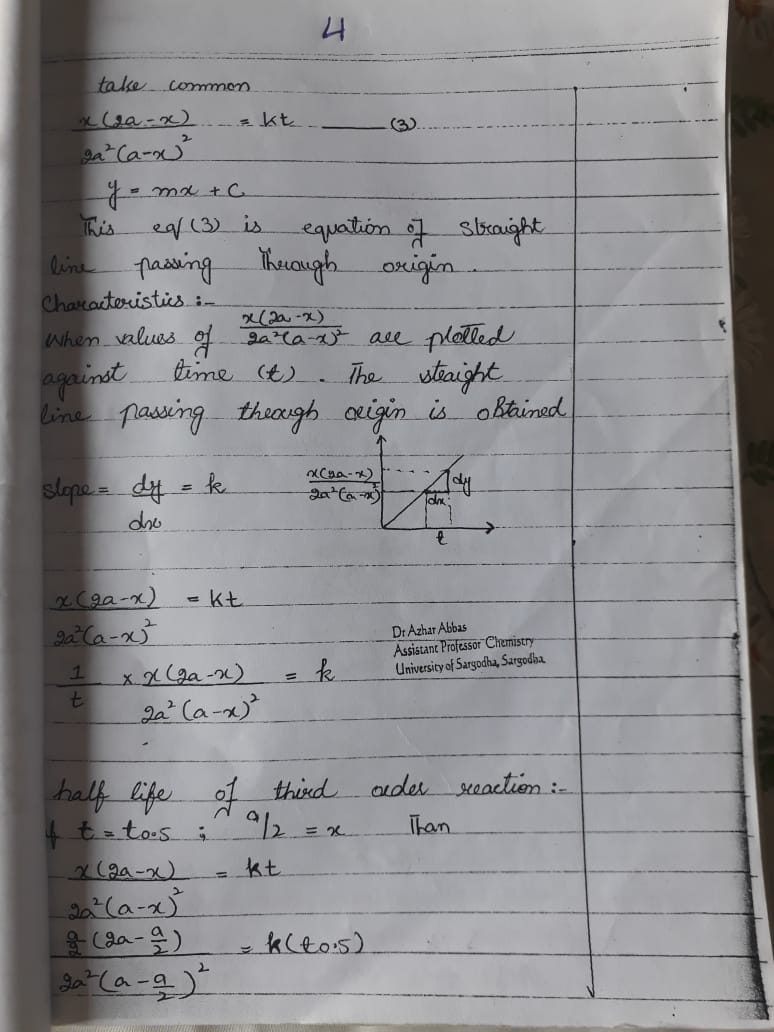 4
take common
x(2a-x) / 2a²(a-x)² = kt ——— (3)
y = mx + C
This eq (3) is equation of straight
line passing through origin.
Characteristics :-
When values of x(2a-x) / 2a²(a-x)² are plotted
against time (t). The staight
line passing through origin is obtained
slope = dy / dx = k
x(2a-x) / 2a²(a-x)²
dy
dx
t
x(2a-x) / 2a²(a-x)² = kt
Dr Azhar Abbas
Assistant Professor Chemistry
University of Sargodha, Sargodha
1 / t × x(2a-x) / 2a²(a-x)² = k
half life of third order reaction :-
t = t0.5 ; a/2 = x Than
x(2a-x) / 2a²(a-x)² = kt
a/2 (2a - a/2) / 2a²(a - a/2)² = k(t0.5)